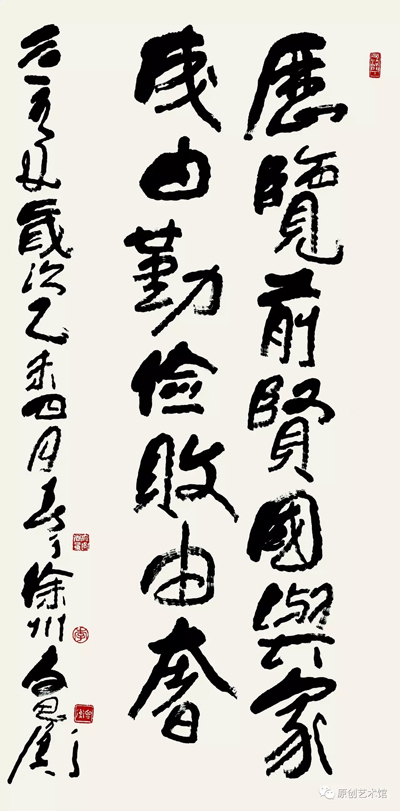 歷覽前賢國與家
成由勤儉敗由奢
歲次乙未四月書于徐州
原创艺术馆